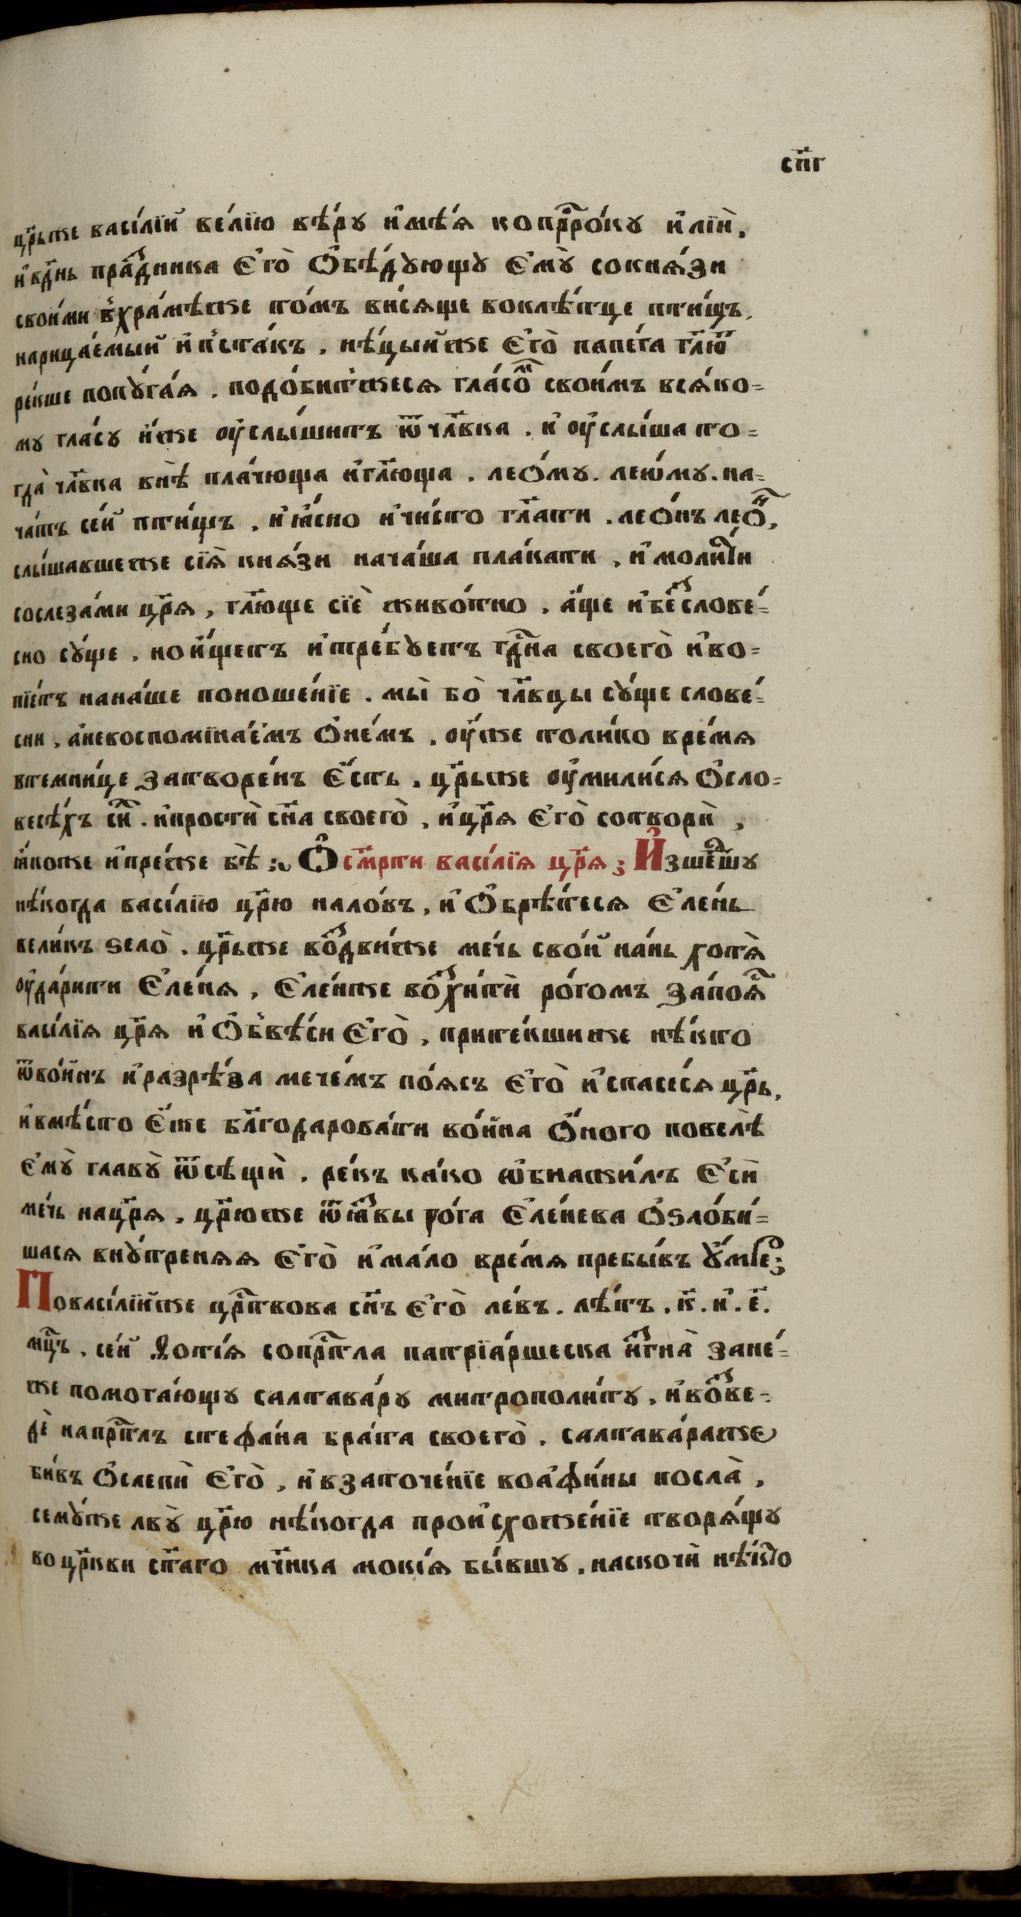 сп҃г
цр҃ьже васі́лїй ве́лїю вѣ́ру и҆мѣ́я копрⷪ҇ро́ку и҆лїѝ.
и҆вдн҃ь пра́здника є҆го̀ ѻ҆бѣ́дующу є҆мꙋ̀ сокня́зи
свои́ми в҆хра́мѣже то́мъ ви́сяще воклѣ́тце пти́цъ.
нарица́емый и҆п҆ста́къ. нѣ́цыйже є҆го̀ папе́га гл҃ютъ
ре́кше попуга́я. подо́битжеся гла́сомъ свои́мъ вся́ко-
му гла́су и҆́же ѹ҆слы́шитъ ѿ чл҃вка. и҆ ѹ҆слы́ша то-
гда̀ чл҃вка внѣ̀ пла́чюща и҆гл҃юща. лео́му. лею́му. на-
ча́тъ се́й пти́цъ, и҆ ꙗ҆́сно и҆ чи́сто гл҃ати. лео́нъ лео́н,
слы́шавшеже сїѧ̀ кня́зи нача́ша пла́кати, и҆ моли́ти
сослеза́ми цр҃я, гл҃юще сїѐ живо́тно, а҆́ще и҆ бесслове́-
сно су́ще, но и҆́щетъ и҆ тре́буетъ гдⷭ҇на своего̀ и҆ во-
пїе́тъ нана́ше поноше́нїе. мы̀ бо̀ чл҃вцы су́ще слове́-
сни, а҆невоспомина́емъ ѻ҆не́мъ, ѹ҆́же толи́ко вре́мя
втемни́це затворе́нъ є҆́сть. цр҃ьже ѹ҆мили́ся ѻ҆сло-
весѣ́хъ си́хъ. и҆простѝ сн҃а своего̀, и҆ цр҃я є҆го̀ сотворѝ,
ꙗ҆́коже и҆ пре́же бѣ̀ : Ѻ҆ сме́рти васі́лїя цр҃я ; И҆зше́дшу
нѣ́когда васі́лїю цр҃ю нало́въ, и҆ ѻ҆брѣ́теся є҆ле́нь
вели́къ ѕело̀. цр҃ьже воздви́же ме́чь сво́й нань хотя̀
ѹ҆да́рити є҆ле́ня, є҆ле́ньже восхитѝ ро́гомъ запо́ясъ
васі́лїя цр҃я и҆ ѻ҆бвѣ́си є҆го̀, прите́кшиже нѣ́кто
ѿво́инъ и҆ разрѣ́за мече́мъ по́ясъ є҆го̀ и҆ спасе́ся цр҃ь,
и҆вмѣ́сто є҆́же бл҃годарова́ти во́ина ѻ҆́ного повелѣ̀
є҆мꙋ̀ главꙋ̀ ѿсѣщѝ. ре́къ ка́ко ѡ҆бнажи́лъ є҆сѝ
ме́чь нацр҃я. цр҃юже ѿ ꙗ҆звы ро́га є҆ле́нева ѻ҆ѕло́би-
шася вну́треняя є҆го̀ и҆ ма́ло вре́мя пребы́въ у҆́мре ;
Повасі́лїйже црⷭ҇твова сн҃ъ є҆го̀ ле́въ. лѣ́тъ. к҃. и҆. є҃.
мцⷭ҇ъ. се́й Ѳоті́я сопрⷭ҇тла патрїа́ршеска и҆згна̀ зане́-
же помога́ющу салтава́ру митрополи́ту, и҆ возве-
дѐ напрⷭ҇тлъ стефа́на бра́та своего̀. салтава́раже
би́въ ѻ҆слепѝ є҆го̀, и҆ взаточе́нїе воаѳи́ны посла̀,
сему́же лвꙋ̀ цр҃ю нѣ́когда прои҆схоже́нїе творя́щу
во цр҃кви ст҃а́го мч҃нка мокі́я бы́вшу. наскочѝ нѣ́кто